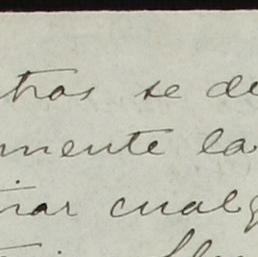 tras se de
mente la
rar cualq